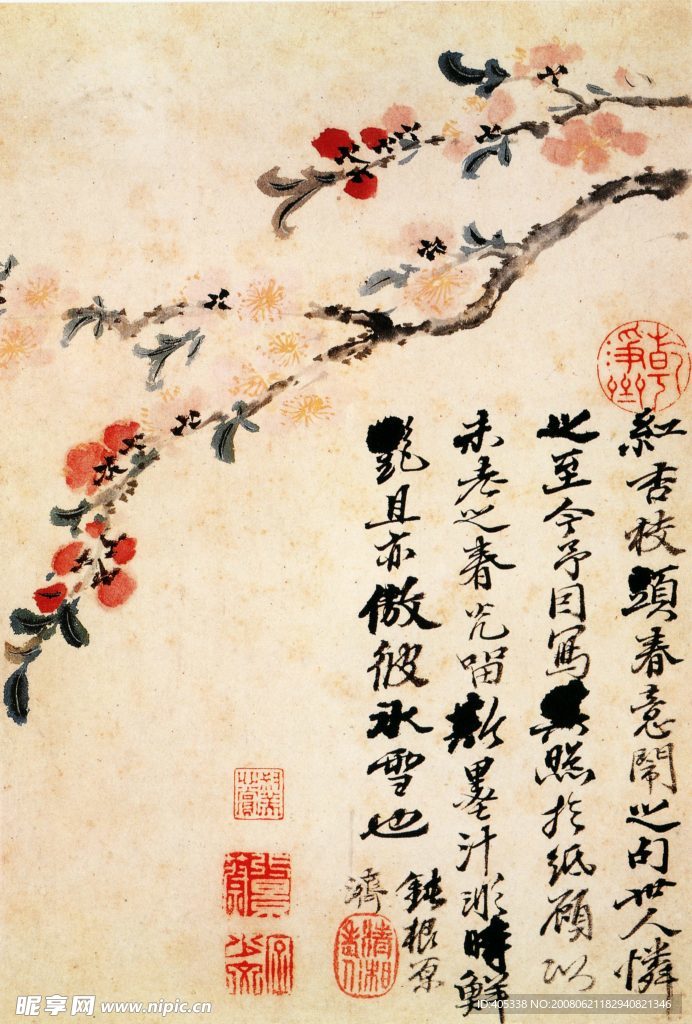 紅杏枝頭春意鬧之句世人憐
之至今予因寫其照於紙顧以
未老之春光留斯墨汁彤時鮮
艷且亦傲彼冰雪也
鈍根原
濟
清湘老人
昵享网 www.nipic.cn
ID:405338 NO:20080621182940821346